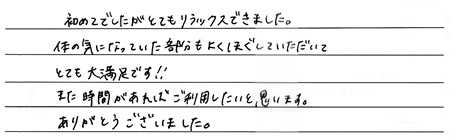 初めてでしたがとてもリラックスできました。
体の気になっていた部分もよくほぐしていただいて
とても大満足です!!
また時間があればご利用したいと思います。
ありがとうございました。